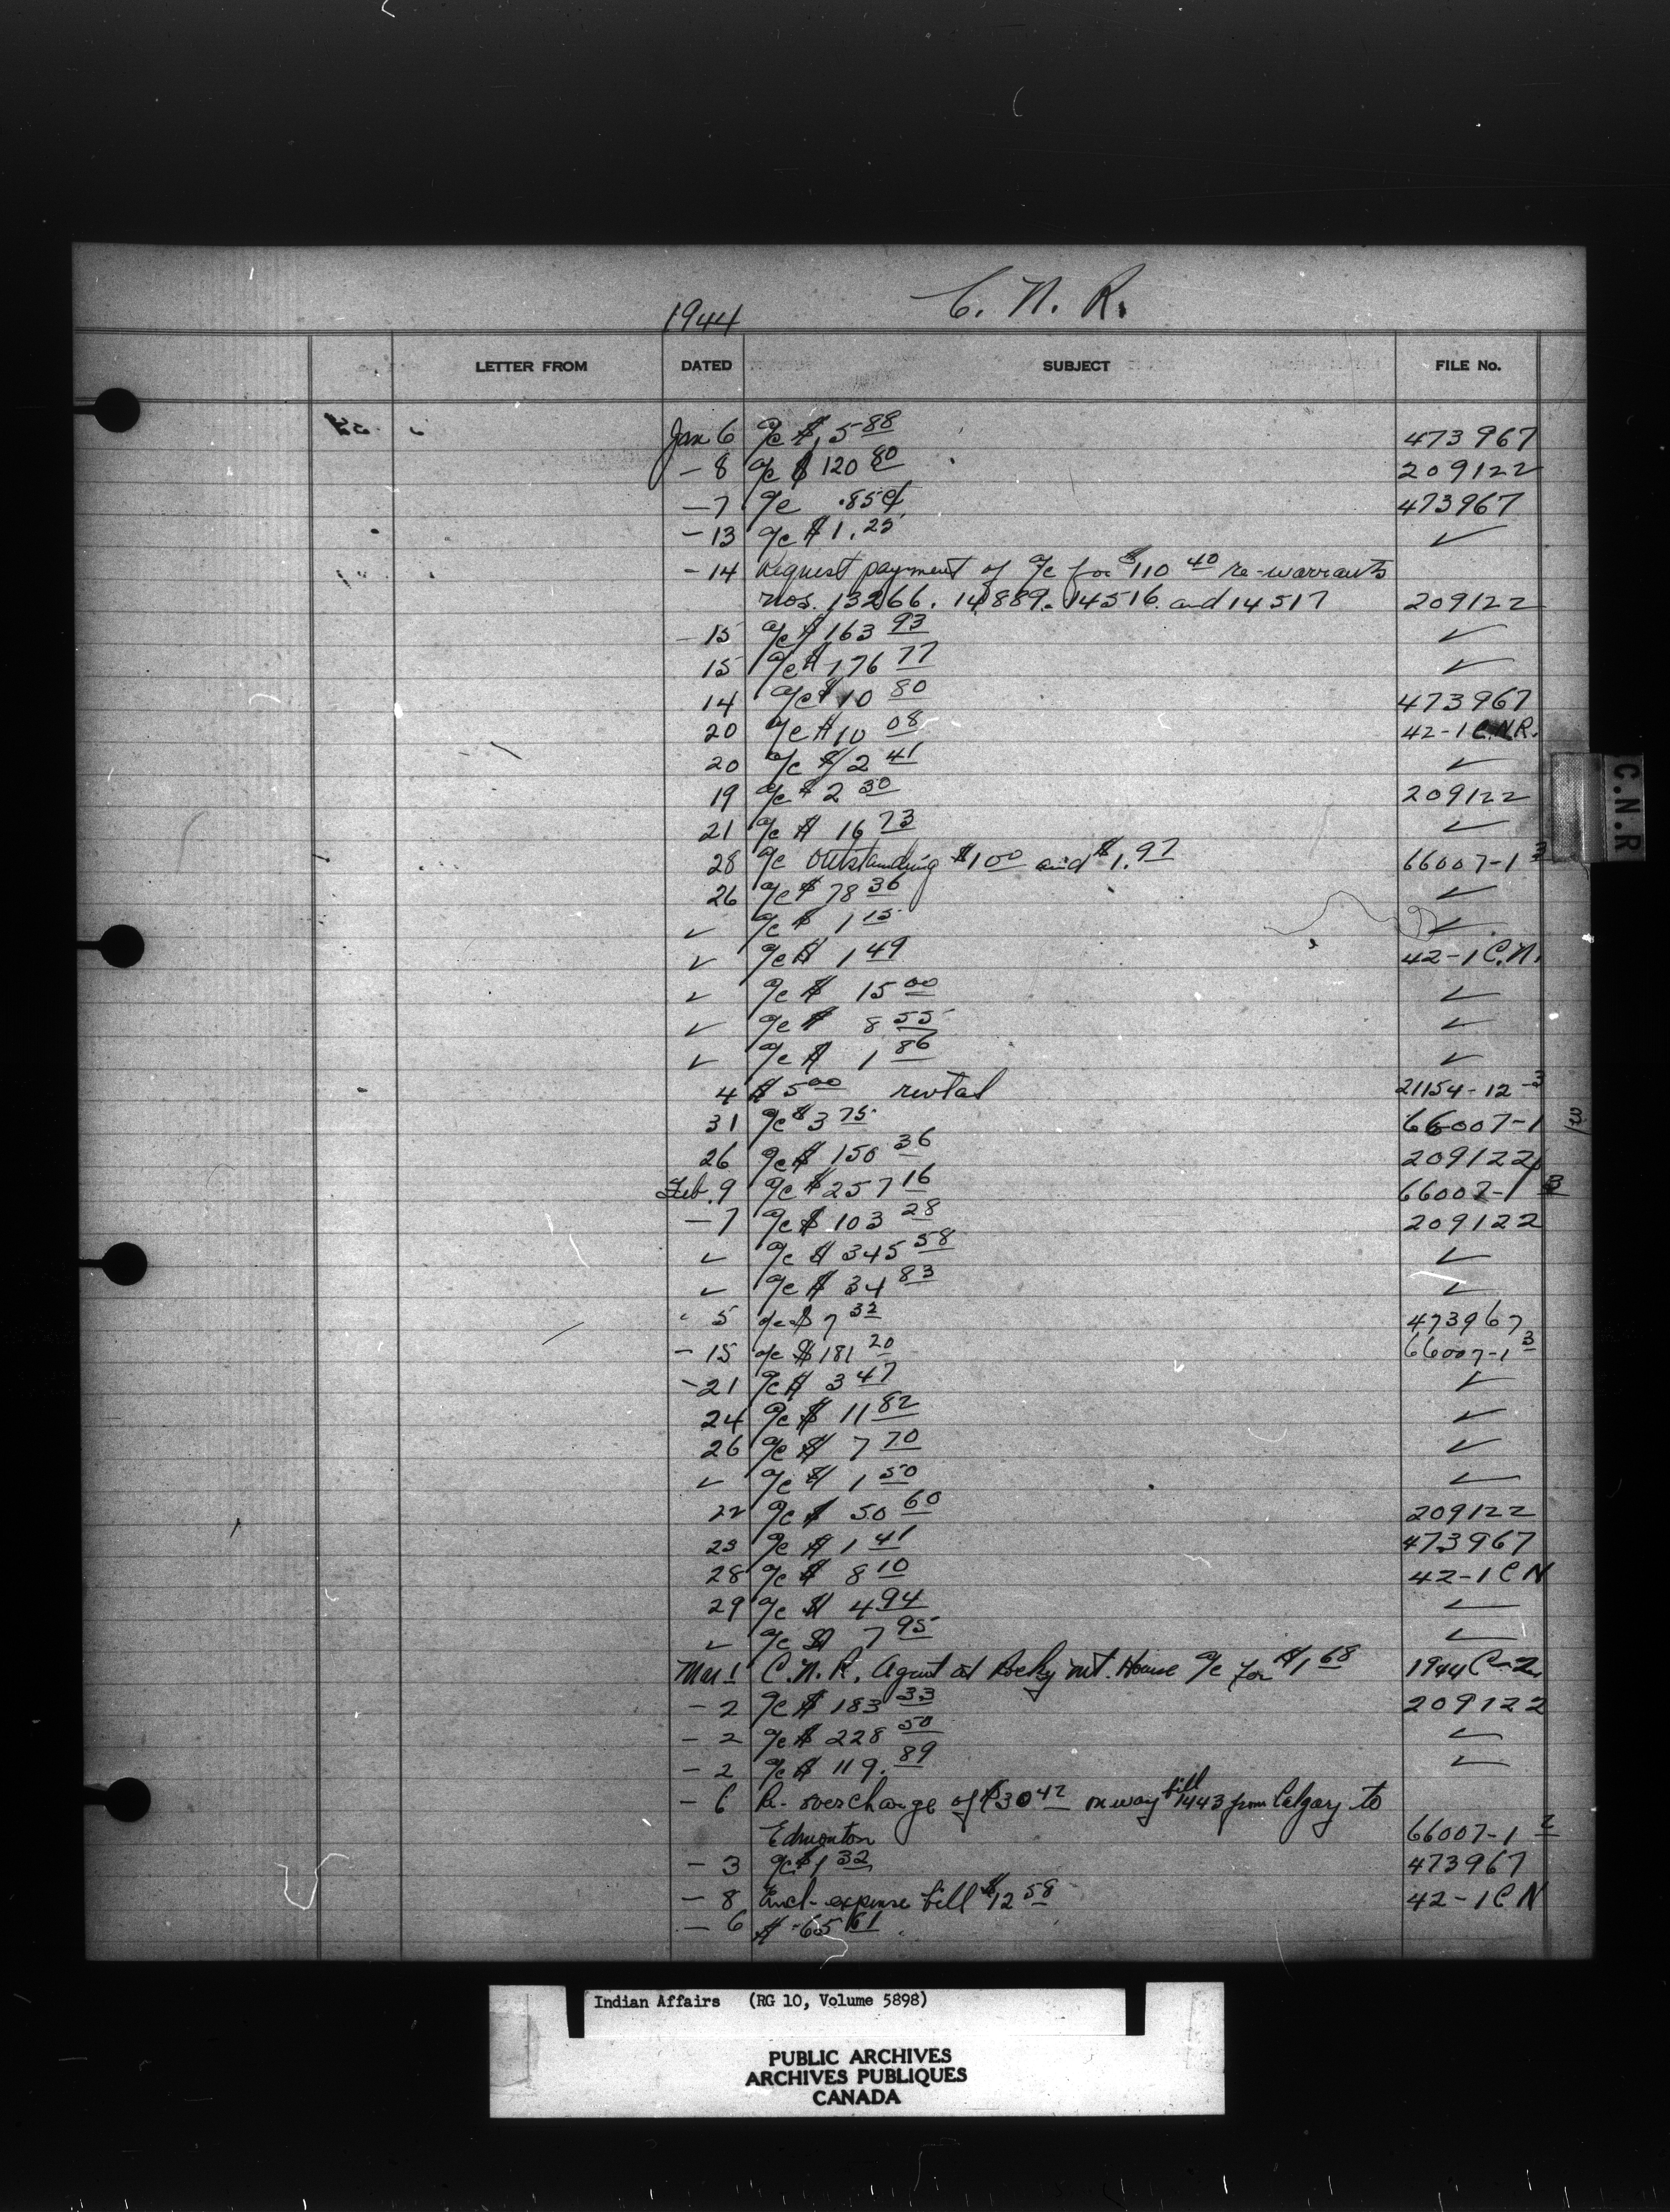 C. N. R.
1944
LETTER FROM DATED SUBJECT FILE No.
Jan 6 a/c $ 5 88 473967
- 8 a/c $ 120 80 209122
- 7 a/c .85¢ 473967
- 13 a/c $ 1.25 ✓
- 14 Request payment of a/c for $110 40 re-warrants
nos. 13266. 14889. 14516. and 14517 209122
- 15 a/c $ 163 93 ✓
15 a/c $ 176 77 ✓
14 a/c $ 10 80 473967
20 a/c $ 10 08 42-1 C.N.R.
20 a/c $ 2 41 ✓
19 a/c $ 2 30 209122
21 a/c $ 16 73 ✓
28 a/c outstanding $1 00 and $1.97 66007-1 3
26 a/c $ 78 36 ✓
✓ a/c $ 1 15 ✓
✓ a/c $ 1 49 42-1 C.N.
✓ a/c $ 15 00 ✓
✓ a/c $ 8 55 ✓
✓ a/c $ 1 86 ✓
4 $ 5 00 rental 21154-12-3
31 a/c $ 3 75 66007-1 3
26 a/c $ 150 36 209122
Feb. 9 a/c $ 257 16 66007-1 3
- 7 a/c $ 103 28 209122
✓ a/c $ 345 58 ✓
✓ a/c $ 34 83 ✓
5 a/c $ 7 32 473967
- 15 a/c $ 181 20 66007-1 3
- 21 a/c $ 3 47 ✓
24 a/c $ 11 82 ✓
26 a/c $ 7 70 ✓
✓ a/c $ 1 50 ✓
22 a/c $ 50 60 209122
23 a/c $ 1 41 473967
28 a/c $ 8 10 42-1 C N
29 a/c $ 4 94 ✓
✓ a/c $ 7 95 ✓
Mar 1 C.N.R. Agent at Rocky Mt. House a/c for $1 68 1944 C-2
- 2 a/c $ 183 33 209122
- 2 a/c $ 228 50 ✓
- 2 a/c $ 119.89 ✓
- 6 Re- overcharge of $30 42 on way bill 1443 from Calgary to
Edmonton 66007-1 2
- 3 a/c $ 1 32 473967
- 8 Encl- expense bill $12 58 42-1 C N
- 6 $ 65 61
C.N.R
Indian Affairs (RG 10, Volume 5898)
PUBLIC ARCHIVES
ARCHIVES PUBLIQUES
CANADA